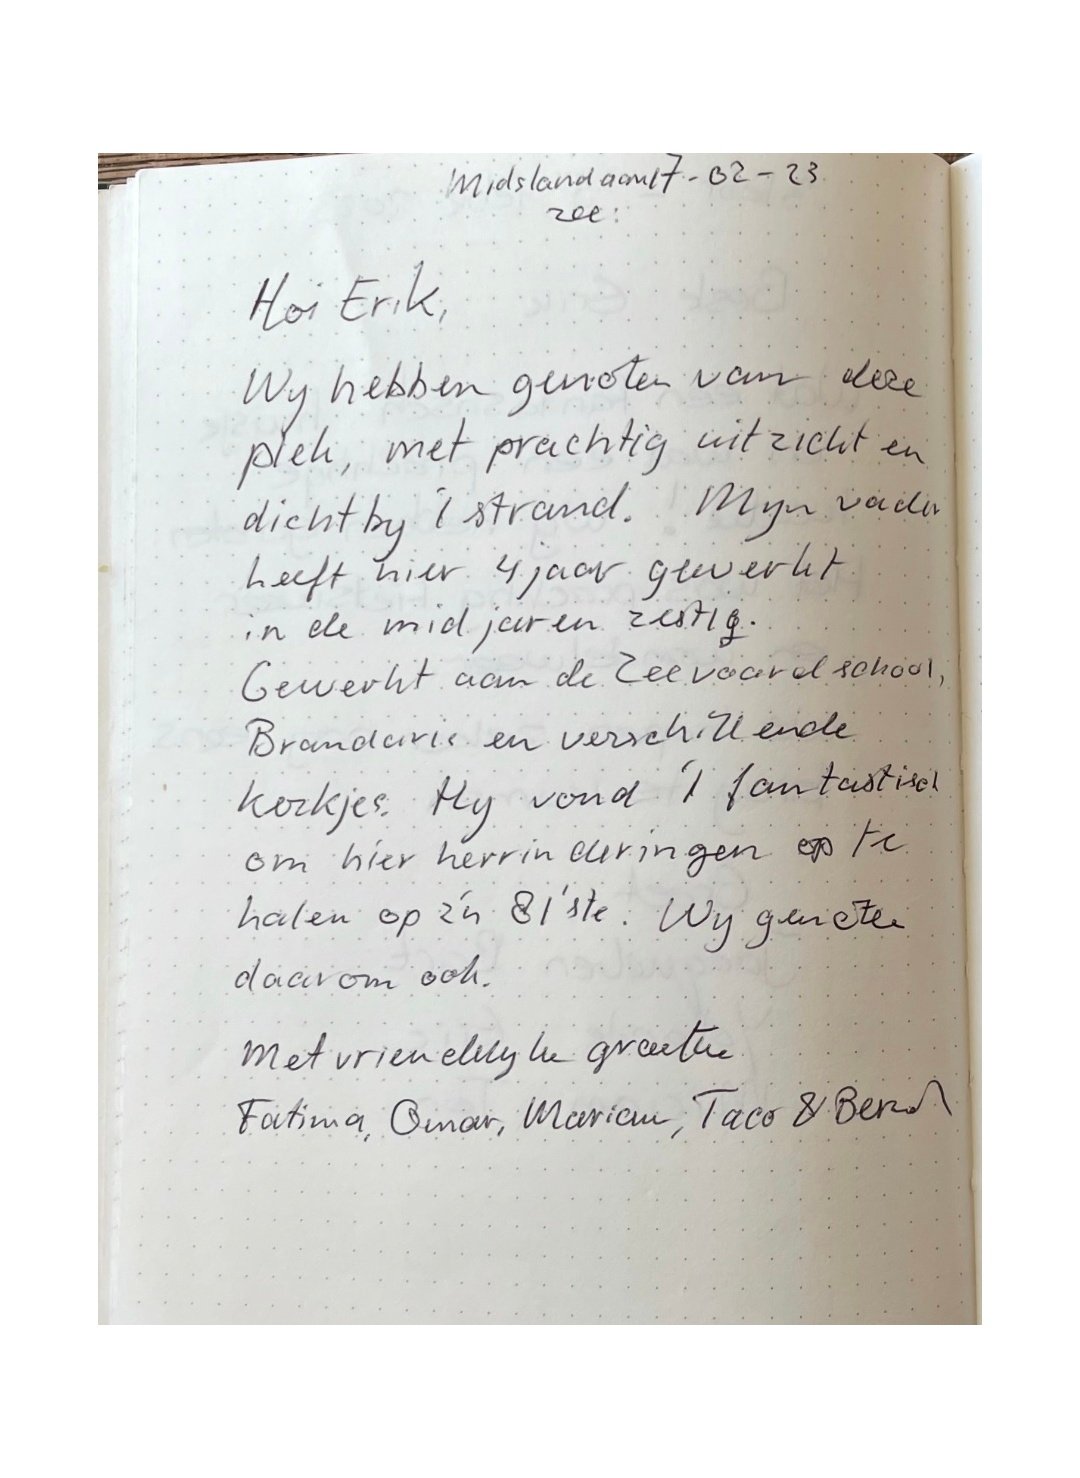 Midsland aan 17-02-23
zee:
Hoi Erik,
Wij hebben genoten van deze
plek, met prachtig uitzicht en
dichtbij 't strand. Mijn vader
heeft hier 4 jaar gewerkt
in de mid jaren zestig.
Gewerkt aan de Zeevaardschool,
Brandaris en verschillende
kerkjes. Hij vond 't fantastisch
om hier herrinderingen op te
halen op z'n 81'ste. Wij genoten
daarom ook.
Met vriendelijke groeten
Fatima, Omar, Mariam, Taco &